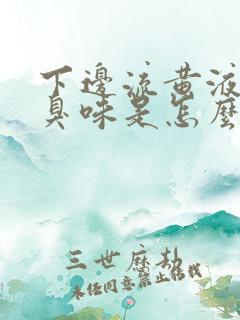 下邊流黃液
臭味是怎麼
三世麻朴
未经同意禁止转载